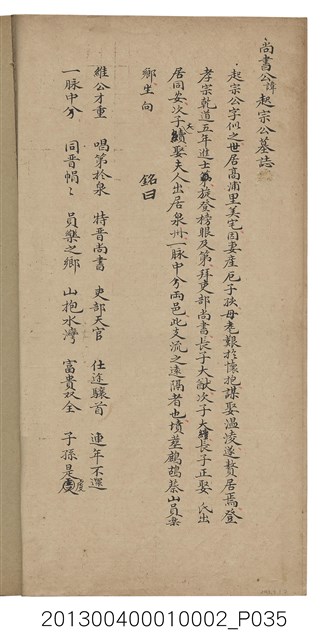 尚書公諱起宗公墓誌
起宗公字似之世居高浦里美宅因妻產厄子孩母老艱於懷抱謀娶溫淩遂贅居焉登
孝宗乾道五年進士為旋登榜眼及第拜吏部尚書長子大猷次子大續長子正娶氏出
居同安次子大續娶夫人出居泉州一脉中兮兩邑此支流之遠隅者也墳塋鷓鴣蔡山員桒
鄉坐向 銘曰
維公才重 唱第於泉 特晋尚書 吏部天官 仕途驤首 連年不還
一脉中兮 同晋帽〻 員桒之鄉 山抱水灣 富貴双全 子孫是度
201300400010002_P035